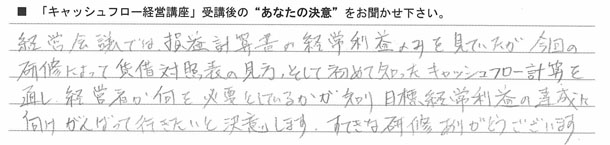 ■ 「キャッシュフロー経営講座」受講後の“あなたの決意”をお聞かせ下さい。
経営会議では損益計算書の経常利益のみを見ていたが今回の
研修によって貸借対照表の見方、そして初めて知ったキャッシュフロー計算を
通し、経営者が何を必要としているかが知り目標経常利益の達成に
向けがんばって行きたいと決意します。すてきな研修ありがとうございます